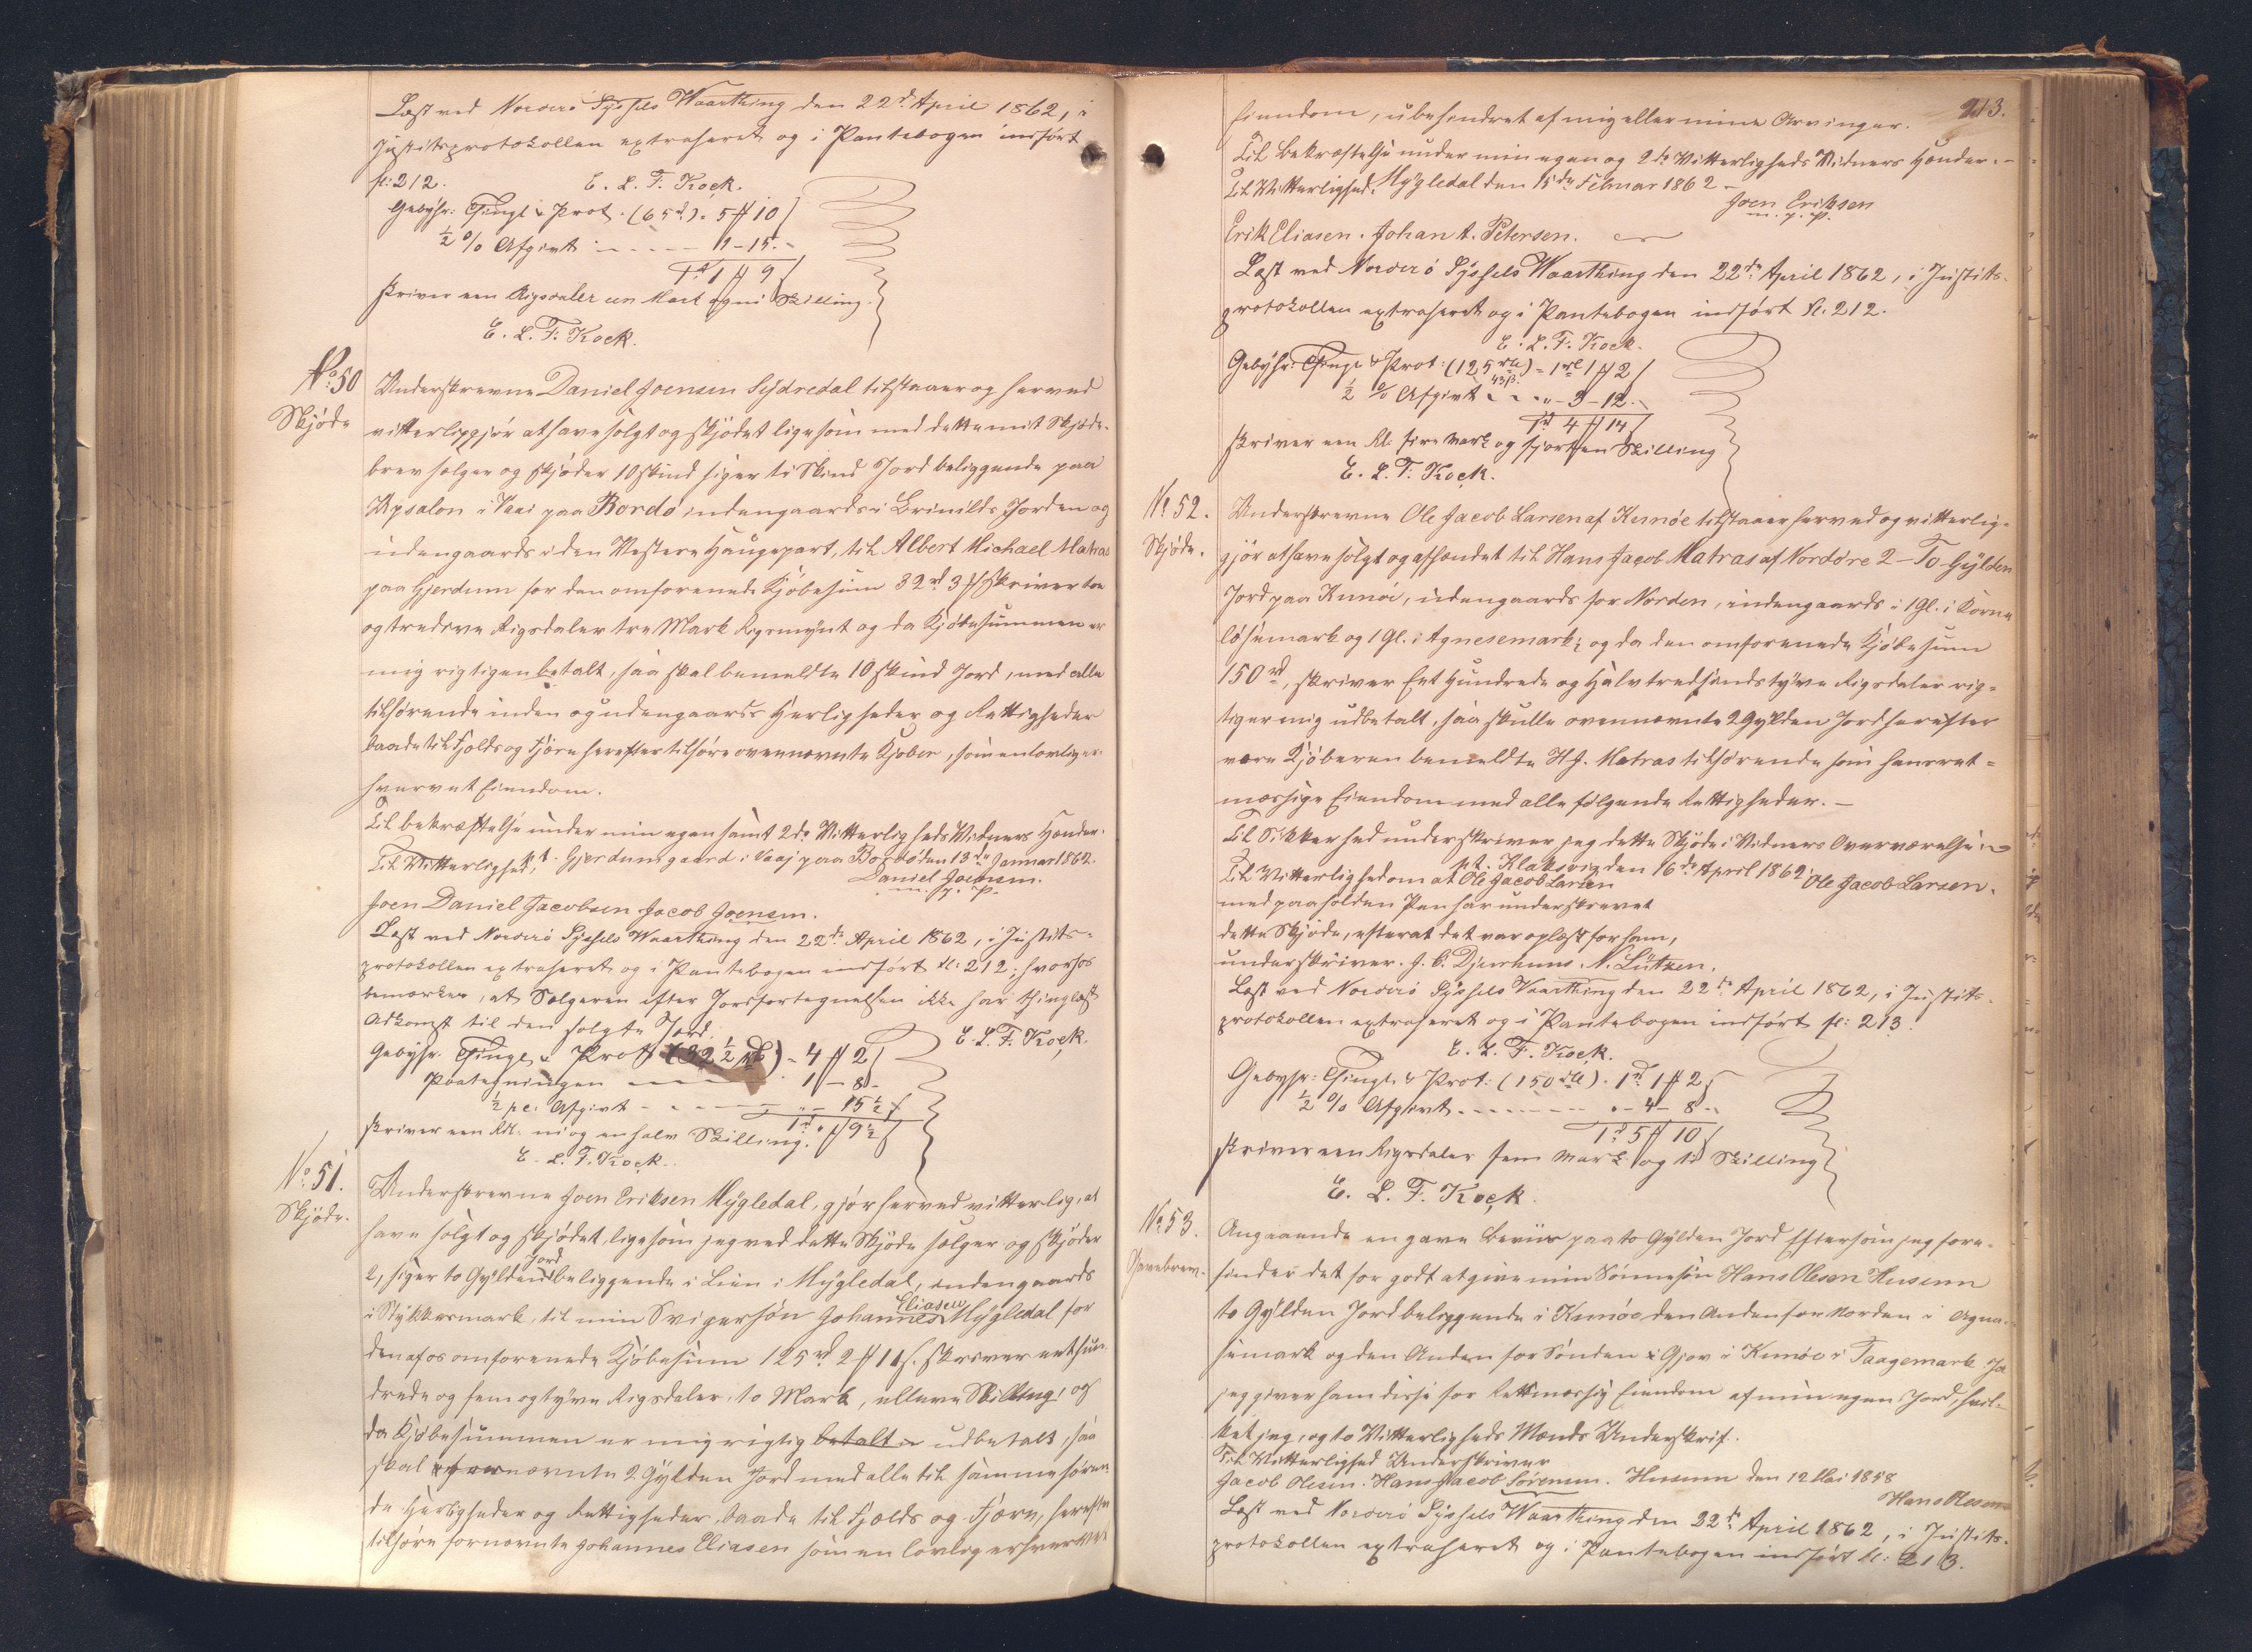 Læst ved Norderø Syssels Vaarthing den 22d April 1862, i
Justitsprotokollen extraheret og i Pantebogen indført
fl: 212. E. L. T. Kock.
Gebyhr: Tingl & Prot. (65rd). 5 ℳ 10
½ % Afgivt - - - - - 1 - 15. -
1rd 1 ℳ 9
skriver een Rigsdaler een Mark og ni Skilling.
E. L. T. Kock.
No 50
Skjøde
Underskrevne Daniel Joensen Sydredal tilstaaer og herved
vitterliggjør at have solgt og skjødet ligesom med dette mit Skjøde-
brev sælger og skjøder 10 skind siger ti Skind Jord beliggende paa
Ypsalon i Vaai paa Bordø indengaards i Brinilds Jorden og
udengaards i den Vestere Haugepart, til Albert Michael Matras
paa Gjerdum for den omforenede Kjøbesum 32rd 3 ℳ skriver toe
og tredeve Rigsdaler tre Mark Rigsmynt og da Kjøbesummen er
mig rigtigen betalt, saa skal bemeldte 10 skind Jord, med alle
tilhørende inden og udengaards Herligheder og Rettigheder
baade til Fjelds og Fjære herefter tilhøre ovennævnte Kjøber, som en lovlig er-
hvervet Eiendom.
Til bekræftelse under min egen samt 2de Vitterligheds Vidners Hænder.
Til Vitterlighed, p.t. Gjerdumsgaard i Vaaj paa Bordø den 13de Januar 1862.
Daniel Joensen.
m. f. P.
Joen Daniel Jacobsen Jacob Joensen.
Læst ved Norderø Syssels Vaarthing den 22de April 1862, i Justits-
protokollen extraheret og i Pantebogen indført fl: 212; hvorhos
bemærkes, at Sælgeren efter Jordfortegnelsen ikke har thinglæst
Adkomst til den solgte Jord.
E. L. T. Kock.
Gebyhr. Tingl. & Prot (32½ rd) - 4 ℳ 2
Paategningen - - - 1 - 8 -
½ pc. Afgivt - - - - - " - 15½
1rd " ℳ 9½
skriver een Rdl. ni og en halv Skilling.
E. L. T. Kock.
No 51.
Skjøde.
Underskrevne Joen Eriksen Mygledal, gjør herved vitterlig, at
have solgt og skjødet, ligesom jeg ved dette Skjøde sælger og skjøder
2, siger to Gylden Jord beliggende i Lien i Mygledal, indengaards
i Stykkersmark, til min Svigersøn Johannes Eliasen Mygledal for
den af os omforenede Kjøbesum 125rd 2 ℳ 11 s. skriver eethun-
drede og fem og tyve Rigsdaler to Mark, elleve Skilling; og
da Kjøbesummen er mig rigtig betalt udbetalt, saa
skal nævnte 2 Gylden Jord med alle til samme høren-
de Herligheder og Rettigheder, baade til Fjelds og Fjære, herefter
tilhøre fornævnte Johannes Eliasen som en lovlig erhvervet
213.
Eiendom, ubehindret af mig eller mine Arvinger.
Til Bekræftelse under min egen og 2de Vitterligheds Vidners Hænder. -
Til Vitterlighed. Mygledal den 15de Februar 1862 -
Joen Eriksen
m. f. P.
Erik Eliasen. Johan A. Petersen.
Læst ved Norderø Syssels Vaarthing den 22de April 1862, i Justits-
protokollen extraheret og i Pantebogen indført fl. 212.
E. L. T. Kock.
Gebyhr: Tingl & Prot: (125 rdl 43 ß.) - 1rdl 1 ℳ 2
½ % Afgivt - - - " - 3 - 12 -
1rd 4 ℳ 14
skriver een Rd. fire Mark og fjorten Skilling
E. L. T. Kock.
No 52.
Skjøde.
Underskrevne Ole Jacob Larsen af Kunøe tilstaaer herved og vitterlig-
gjør at have solgt og afhændet til Hans Jacob Matras af Nordøre 2 - To Gylden
Jord paa Kunøe, udengaards for Norden, indengaards i 1 Gl. i Korne
løsemark og 1 Gl. i Agnesemark; og da den omforenede Kjøbesum
150 rd, skriver Eet Hundrede og Halvtredsindstyve Rigsdaler rig-
tig er mig udbetalt, saa skulle ovennævnte 2 Gylden Jord herefter
være Kjøberen bemeldte HJ. Matras tilhørende som hans ret-
mæssige Eiendom med alle følgende Rettigheder. -
Til Sikkerhed underskriver jeg dette Skjøde i Vidners Overværelse
pt. Klaksvig den 16de April 1862 Ole Jacob Larsen.
Til Vitterlighed om at Ole Jacob Larsen
med paaholden Pen har underskrevet
dette Skjøde, efter at det var oplæst for ham,
underskriver. J. C. Djurhuus. N. Lützen.
Læst ved Norderø Syssels Vaarthing den 22de April 1862, i Justits-
protokollen extraheret og i Pantebogen indført fl: 213.
E. L. T. Kock.
Gebyhr: Tingl. & Prot: (150 rdl). 1rd 1 ℳ 2
½ % Afgivt - - - - - " - 4 - 8 -
1rd 5 ℳ 10
skriver een Rigsdaler fem Mark og ti Skilling
E. L. T. Kock.
No 53.
Gavebrev.
Angaaende en gave Beviis paa to Gylden Jord Eftersom jeg fore-
finder det for godt at give min Sønnesøn Hans Olesen Husum
to Gylden Jord beliggende i Kunøe den Anden for Norden i Agne-
semark og den Anden for Sønden i Gjov i Kunøe i Taagemark Ja
jeg giver ham disse for Rettmæssig Eiendom af min egen Jord, hvil-
ket jeg, og to Vitterligheds Mænds Underskrif.
Til Vitterlighed Underskriver
Jacob Olesen. Hans Jacob Sørensen. Husum den 12 Mai 1858
Hans Olesen
Læst ved Norderø Syssels Vaarthing den 22de April 1862, i Justits-
protokollen extraheret og i Pantebogen indført fl: 213.